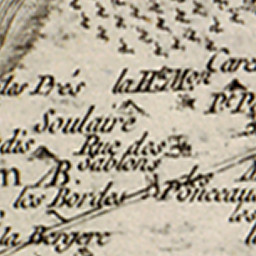 des Prés la H.te M.on Care
P.t P
Soulaire
dis Rue des
Sablons
m B.
les Bordes des Ponceaux
les
la Bergere